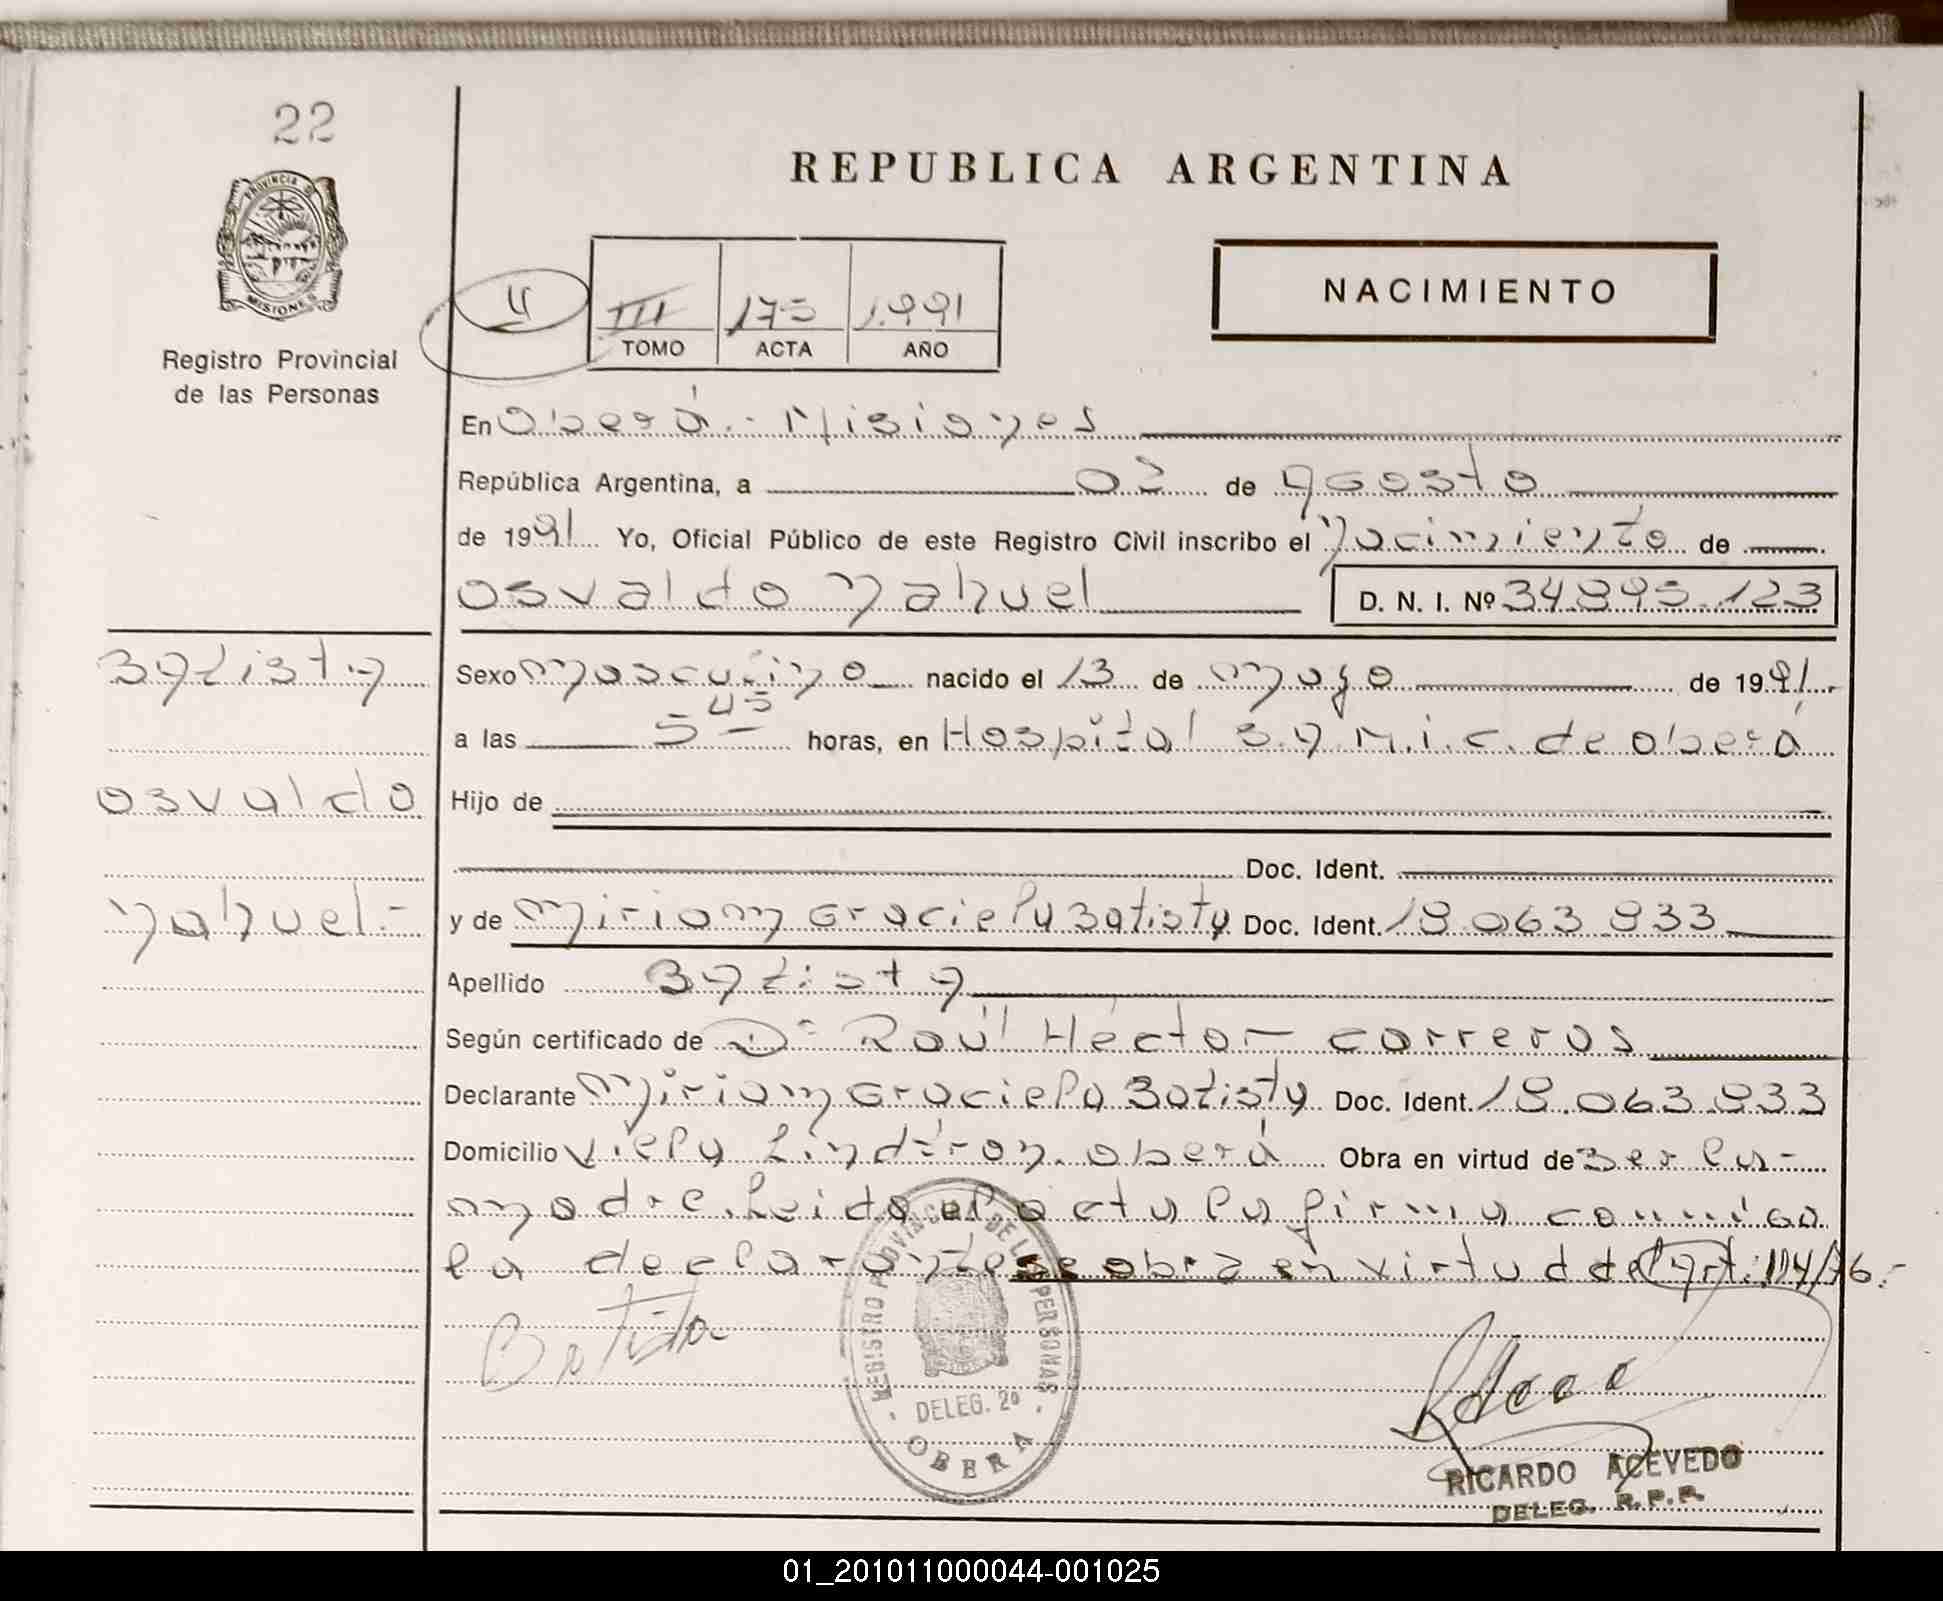 22
REPUBLICA ARGENTINA
PROVINCIA D
MISIONES
Registro Provincial
de las Personas
II
III 175 1.991
TOMO ACTA AÑO
NACIMIENTO
En Oberá - Misiones
República Argentina, a 02 de agosto
de 1991 Yo, Oficial Público de este Registro Civil inscribo el nacimiento de
Osvaldo Nahuel D. N. I. Nº 34.895.123
Batista
Sexo masculino nacido el 13 de mayo de 1991
a las 5 45 horas, en Hospital S.A.M.I.C. de Oberá
Osvaldo
Hijo de
Doc. Ident.
Nahuel.-
y de Miriam Graciela Batista Doc. Ident. 18.063.833
Apellido Batista
Según certificado de Dr Raúl Héctor Carreras
Declarante Miriam Graciela Batista Doc. Ident. 18.063.833
Domicilio Villa Lindstron. Oberá Obra en virtud de ser la -
madre. Leida el acta la firma conmigo
la declarante se obra en virtud del Art: 114/76.-
Batista
REGISTRO PROVINCIAL DE LAS PERSONAS
DELEG. 2º
OBERA
RICARDO ACEVEDO
DELEG. R.P.P.
01_201011000044-001025